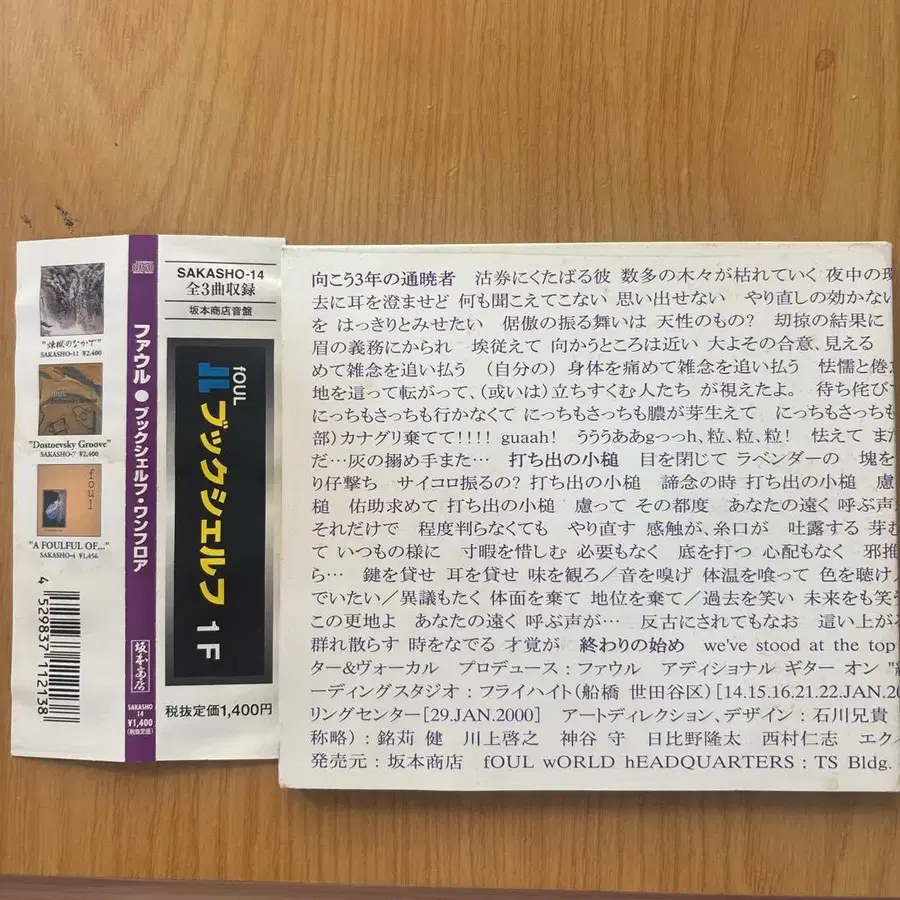 "煉獄のなかで"
SAKASHO-11 ¥2,400
"Dostoevsky Groove"
SAKASHO-7 ¥2,400
foul
"A FOULFUL OF..."
SAKASHO-4 ¥1,456
4 529837 112138
ファウル●ブックシェルフ・ワンフロア
坂本商店
SAKASHO
14
¥1,400
(税抜定価)
SAKASHO-14
全3曲収録
坂本商店音盤
fOUL
ブックシェルフ 1F
税抜定価1,400円
向こう3年の通暁者 沽券にくたばる彼 数多の木々が枯れていく 夜中の環
去に耳を澄ませど 何も聞こえてこない 思い出せない やり直しの効かない
を はっきりとみせたい 倨傲の振る舞いは 天性のもの? 劫掠の結果に
眉の義務にかられ 埃従えて 向かうところは近い 大よその合意、見える
めて雑念を追い払う (自分の) 身体を痛めて雑念を追い払う 怯懦と倦怠
地を這って転がって、(或いは) 立ちすくむ人たち が視えたよ。 待ち侘びて
にっちもさっちも行かなくて にっちもさっちも膿が芽生えて にっちもさっちも
部) カナグリ棄てて!!!! guaah! うううああgっっh、粒、粒、粒! 怯えて また
だ…灰の搦め手また… 打ち出の小槌 目を閉じて ラベンダーの 塊を
り仔撃ち サイコロ振るの? 打ち出の小槌 諦念の時 打ち出の小槌 慮
槌 佑助求めて 打ち出の小槌 慮って その都度 あなたの遠く 呼ぶ声
それだけで 程度判らなくても やり直す 感触が、糸口が 吐露する 芽む
て いつもの様に 寸暇を惜しむ 必要もなく 底を打つ 心配もなく 邪推
ら… 鍵を貸せ 耳を貸せ 味を観ろ/音を嗅げ 体温を喰って 色を聴け/
でいたい/異議もたく 体面を棄て 地位を棄て/過去を笑い 未来をも笑う
この更地よ あなたの遠く 呼ぶ声が… 反古にされてもなお 這い上が
群れ散らす 時をなでる 才覚が 終わりの始め we've stood at the top
ター&ヴォーカル プロデュース:ファウル アディショナル ギター オン
ーディングスタジオ:フライハイト(船橋 世田谷区) [14.15.16.21.22.JAN.20
リングセンター[29.JAN.2000] アートディレクション、デザイン:石川兄貴
称略):銘苅 健 川上啓之 神谷 守 日比野隆太 西村仁志 エクイ
発売元:坂本商店 fOUL wORLD hEADQUARTERS:TS Bldg.